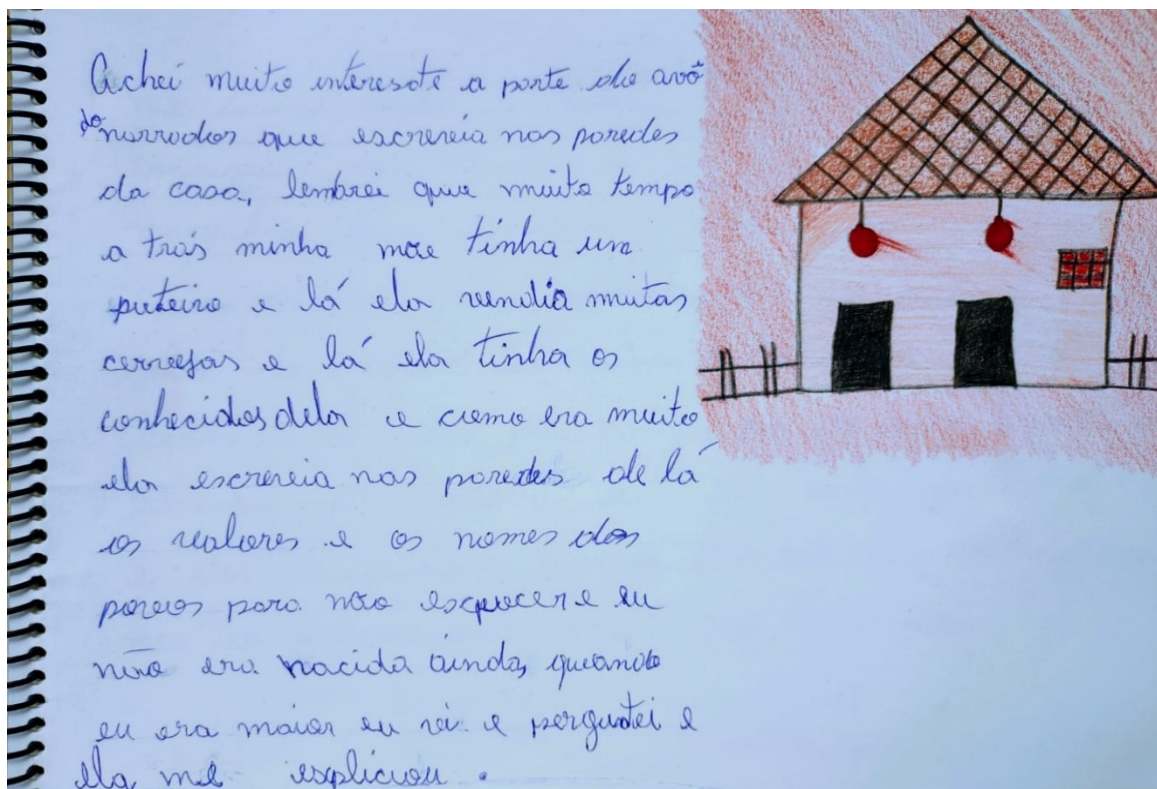 Achei muito interesote a parte do avô
do narrador que escreveia nas paredes
da casa, lembrei que muito tempo
a trás minha mãe tinha um
puteiro e lá ela vendia muitas
cervejas e lá ela tinha os
conhecidos dela e como era muito
ela escreveia nas paredes de lá
os valores e os nomes dos
povos para não esquecer e eu
não era nacida ainda, quando
eu era maior eu vi e pergutei e
ela me expliciou.